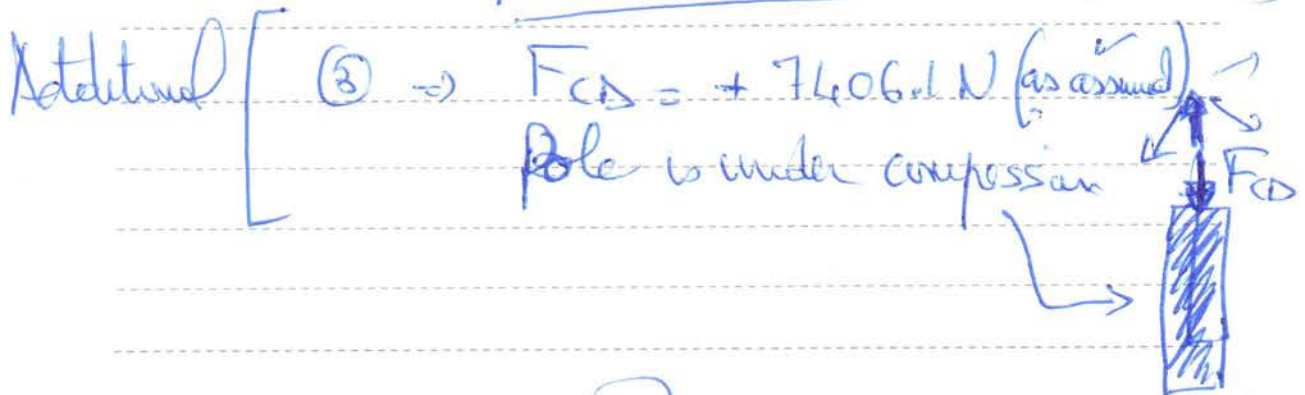 Additional [ ③ => F_CD = + 7406.1 N (as assumed)
Pole is under compression
F_CD